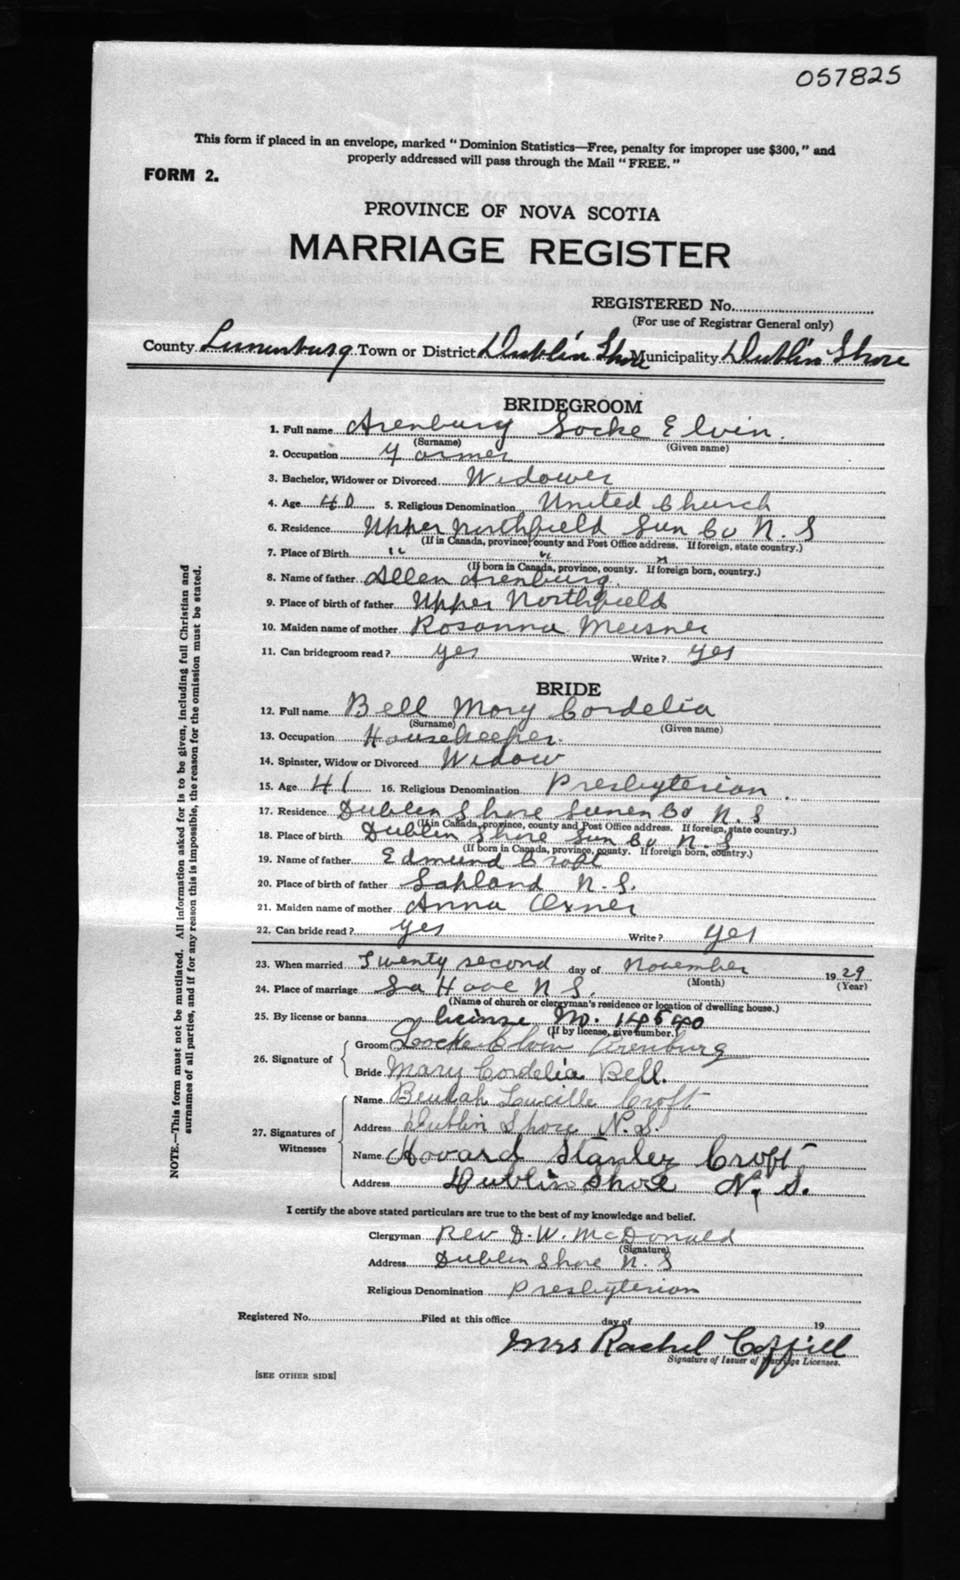 057825
This form if placed in an envelope, marked "Dominion Statistics—Free, penalty for improper use $300," and
properly addressed will pass through the Mail "FREE."
FORM 2.
PROVINCE OF NOVA SCOTIA
MARRIAGE REGISTER
REGISTERED No.
(For use of Registrar General only)
County Lunenburg Town or District Dublin Shore Municipality Dublin Shore
BRIDEGROOM
1. Full name Arenburg Locke Elvin.
(Surname) (Given name)
2. Occupation Farmer
3. Bachelor, Widower or Divorced Widower
4. Age 40 5. Religious Denomination United Church
6. Residence Upper Northfield Lun Co N.S
(If in Canada, province, county and Post Office address. If foreign, state country.)
7. Place of Birth " " "
(If born in Canada, province, county. If foreign born, country.)
8. Name of father Allen Arenburg.
9. Place of birth of father Upper Northfield
10. Maiden name of mother Rosanna Meisner
11. Can bridegroom read? yes Write? yes
BRIDE
12. Full name Bell Mary Cordelia
(Surname) (Given name)
13. Occupation Housekeeper.
14. Spinster, Widow or Divorced Widow
15. Age 41 16. Religious Denomination Presbyterian.
17. Residence Dublin Shore Lunen Co N.S
(If in Canada, province, county and Post Office address. If foreign, state country.)
18. Place of birth Dublin Shore Lun Co N.S
(If born in Canada, province, county. If foreign born, country.)
19. Name of father Edmund Croft
20. Place of birth of father Lapland N.S.
21. Maiden name of mother Anna Oxner
22. Can bride read? yes Write? yes
23. When married Twenty second day of November 1929
(Month) (Year)
24. Place of marriage La Have N S.
(Name of church or clergyman's residence or location of dwelling house.)
25. By license or banns license No. 14540
(If by license, give number.)
26. Signature of
Groom Locke Elvin Arenburg
Bride Mary Cordelia Bell.
27. Signatures of Witnesses
Name Beulah Lucille Croft
Address Dublin Shore N.S.
Name Howard Stanley Croft
Address Dublin Shore N.S.
I certify the above stated particulars are true to the best of my knowledge and belief.
Clergyman Rev D.W. McDonald
(Signature)
Address Dublin Shore N.S
Religious Denomination Presbyterian
Registered No. Filed at this office day of 19
Mrs Rachel Coffill
Signature of Issuer of Marriage Licenses.
[SEE OTHER SIDE]
NOTE.—This form must not be mutilated. All information asked for is to be given, including full Christian and
surnames of all parties, and if for any reason this is impossible, the reason for the omission must be stated.